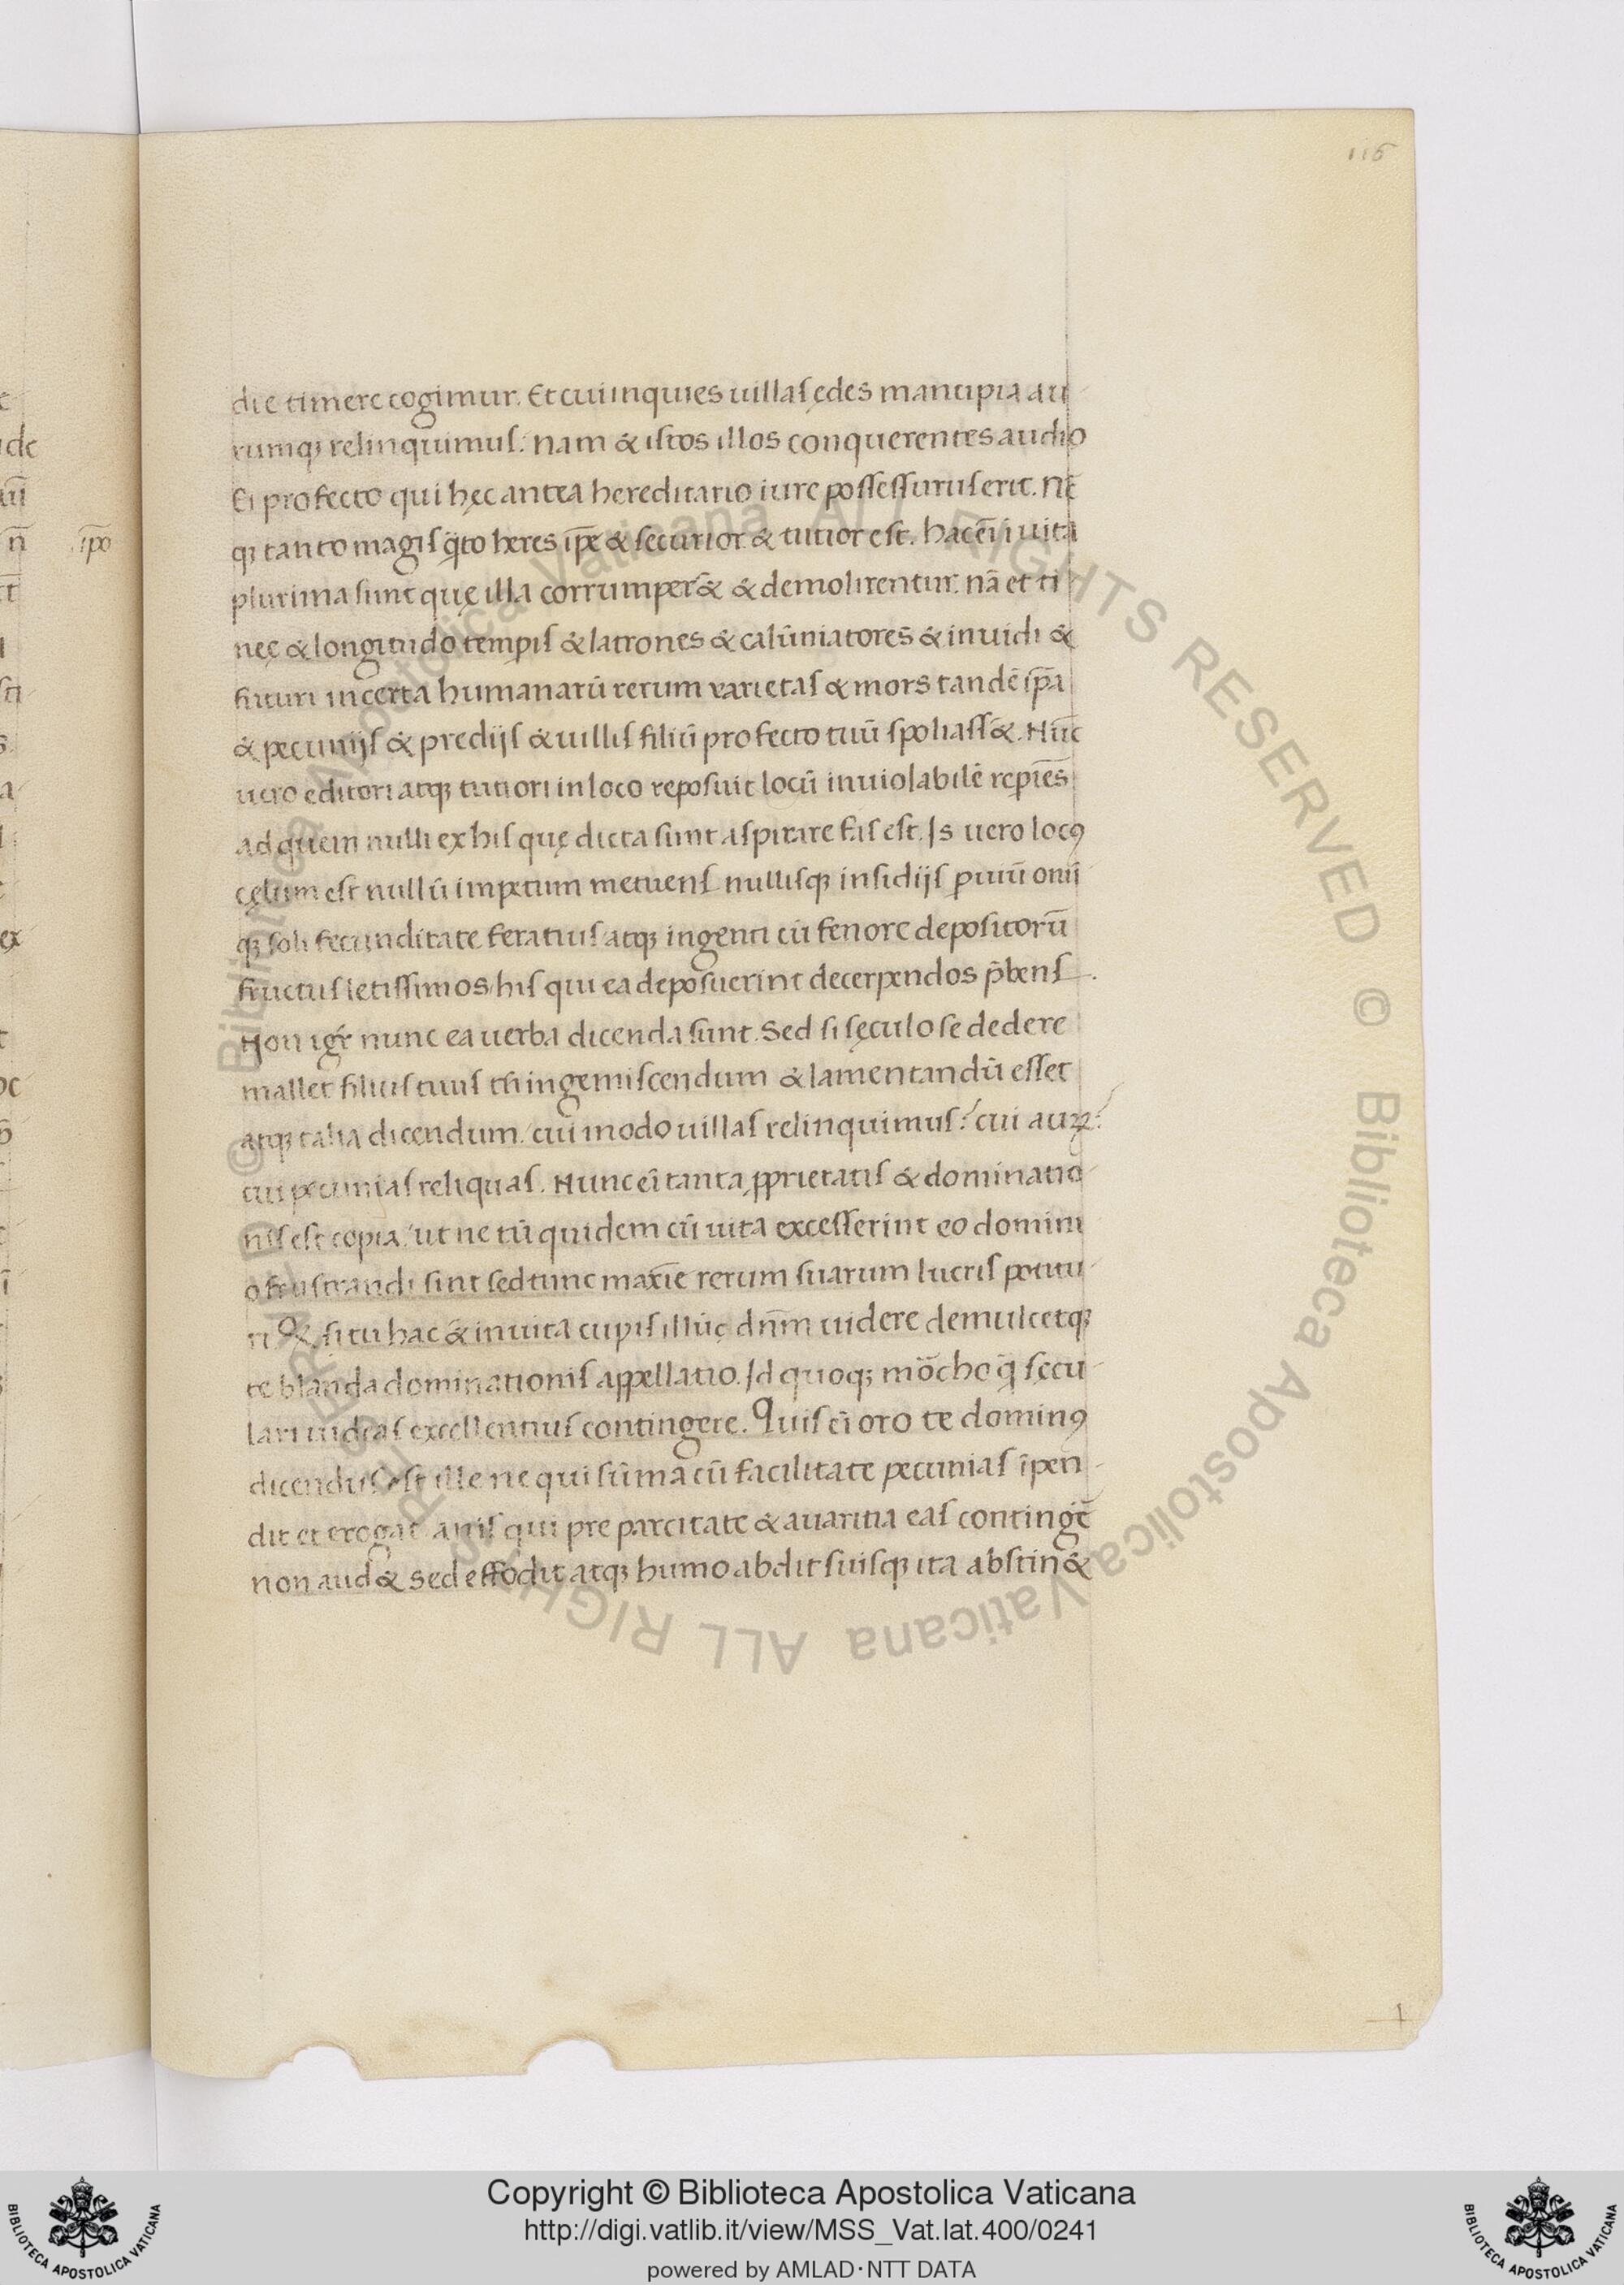 116
die timere cogimur. Et cui inquies uillas ędes mancipia au
rumq; relinquimus? nam & istos illos conquerentes audio
Ei profecto qui hęc antea hereditario iure possessurus erit. nē
q; tanto magis q̄to heres ip̄e & securior & tutior est. hac en̄ i uita
plurima sunt quę illa corrumper& & demolirentur. nā et ti
neę & longitudo tempis & latrones & calūniatores & inuidi &
futuri incerta humanarū rerum varietas & mors tandē ip̄a
& pecunijs & predijs & uillis filiū profecto tuū spoliass&. Nūc
uero editori atq; tutiori in loco reposuit locū inuiolabilē repiēs
ad quem nulli ex his quę dicta sunt aspirare fas est. Is uero locꝯ
cęlum est nullū impetum metuens nullisq; insidijs puiū omī
q; soli fecunditate feratius atq; ingenti cū fenore depositorū
fructus letissimos his qui ea deposuerint decerpendos p̄bens.
Non igr̄ nunc ea uerba dicenda sunt. Sed si sęculo se dedere
mallet filius tuus tn̄ ingemiscendum & lamentandū esset
atq; talia dicendum. cui modo uillas relinquimus? cui auꝝ?
cui pecunias reliquas. Nunc eī tanta ꝓprietatis & dominatio
nis est copia ut ne tū quidem cū uita excesserint eo domini
o frustrandi sint sed tunc maxīe rerum suarum lucris potitu
ri. Q& si tu hac & in uita cupis illūc dn̄m uidere demulcetq;
te blanda dominationis appellatio. Id quoq; mōcho q̄ sęcu
lari uideas excellentius contingere. Quis eī oro te dominꝯ
dicendus est ille ne qui sūma cū facilitate pecunias īpen
dit et erogat an is qui pre parcitate & avaritia eas contingē
non aud& sed effodit atq; humo abdit suisq; ita abstin&
de
ip̄o
ex
© Biblioteca Apostolica Vaticana ALL RIGHTS RESERVED © Biblioteca Apostolica Vaticana ALL RIGHTS RESERVED
Copyright © Biblioteca Apostolica Vaticana
http://digi.vatlib.it/view/MSS_Vat.lat.400/0241
powered by AMLAD·NTT DATA
BIBLIOTECA APOSTOLICA VATICANA
BIBLIOTECA APOSTOLICA VATICANA